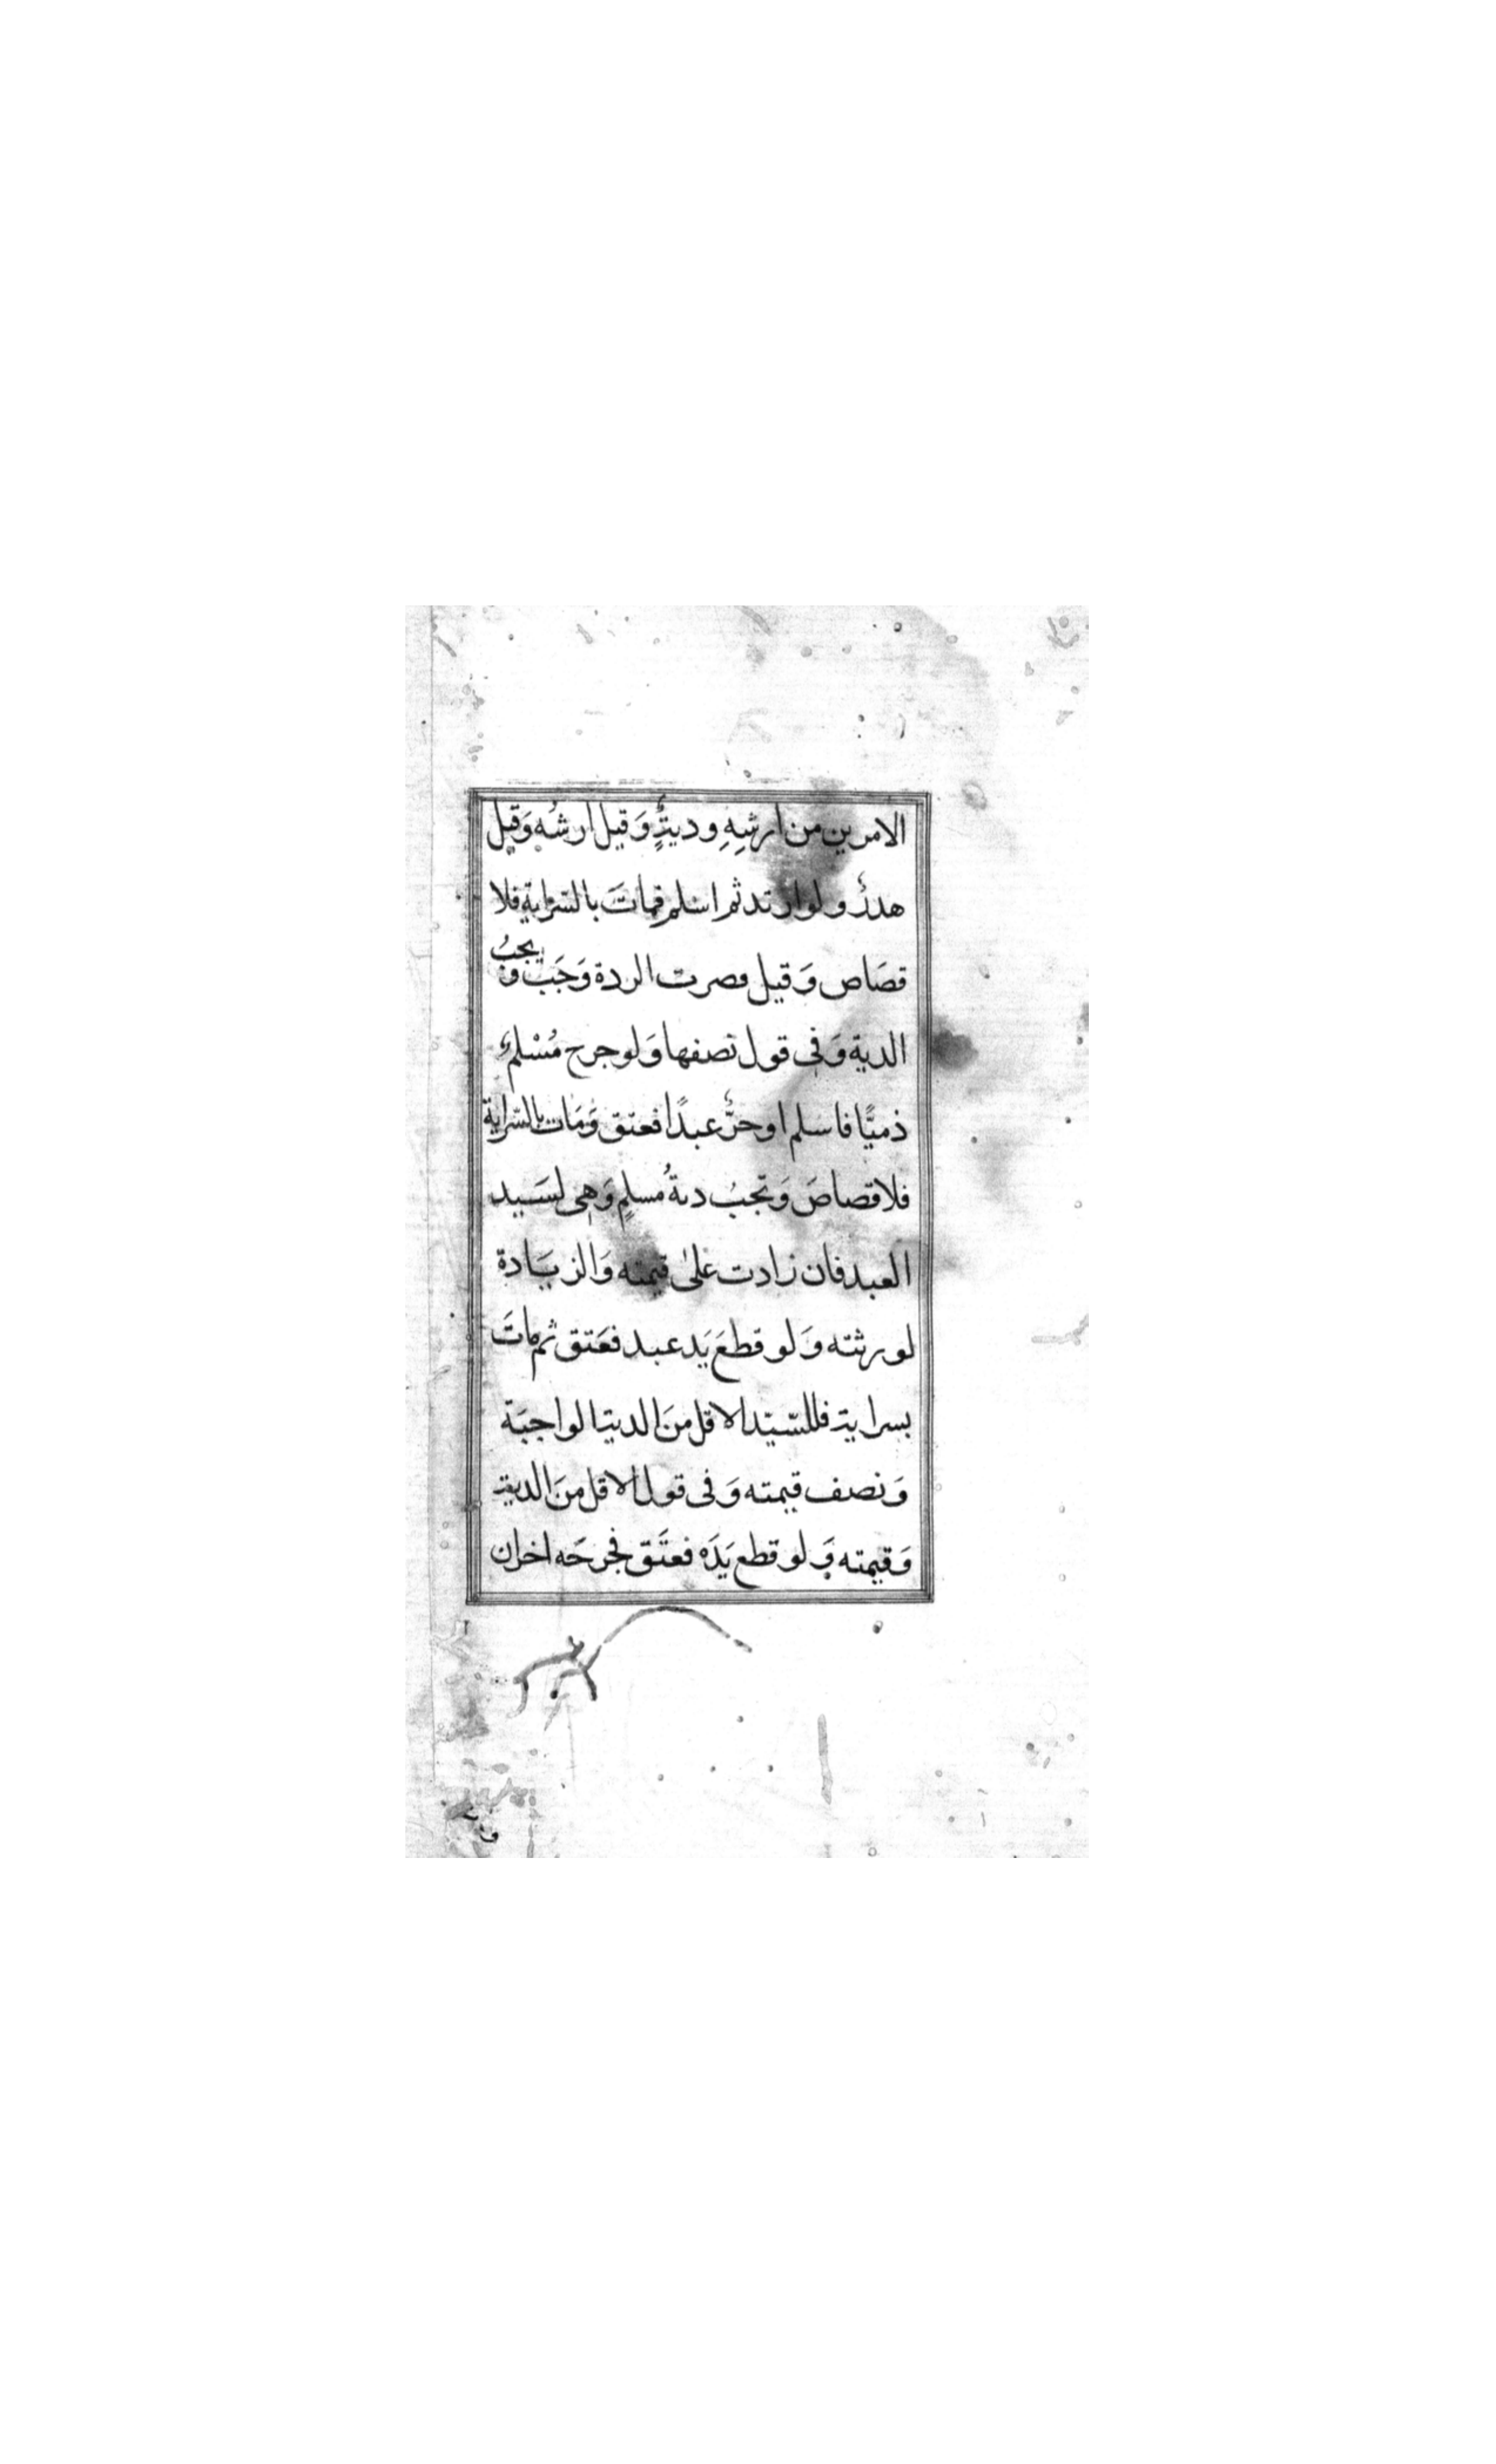 الامرين من ارشِهِ وديتٍهٌ وَقيل ارشُه وَقيل
هدرٌ ولو ارتد ثم اسلم فمات بالسّراية فلا
قصَاص وَقيل ان قصرت الردة وَجَبَ وَ يجبُ
الدية وَفى قول نصفها وَلو جرح مُسْلمٌ
ذميًّا فاسلم او حرٌّ عبدًا فعتق وَمَات بالسّراية
فلا قصاصَ وَتجبُ ديةُ مُسلمٍ وَهى لسَيد
العبد فان زادت عَلىٰ قيمته وَالزيَادة
لورثته وَلو قطعَ يَد عبد فعَتق ثم مَاتَ
بسراية فللسّيّد الاقل منَ الدية الواجبَة
وَنصف قيمته وَفى قول الاقل منَ الدية
وَقيمته وَلو قطع يَدَه فعتَق فجرحَه اخران